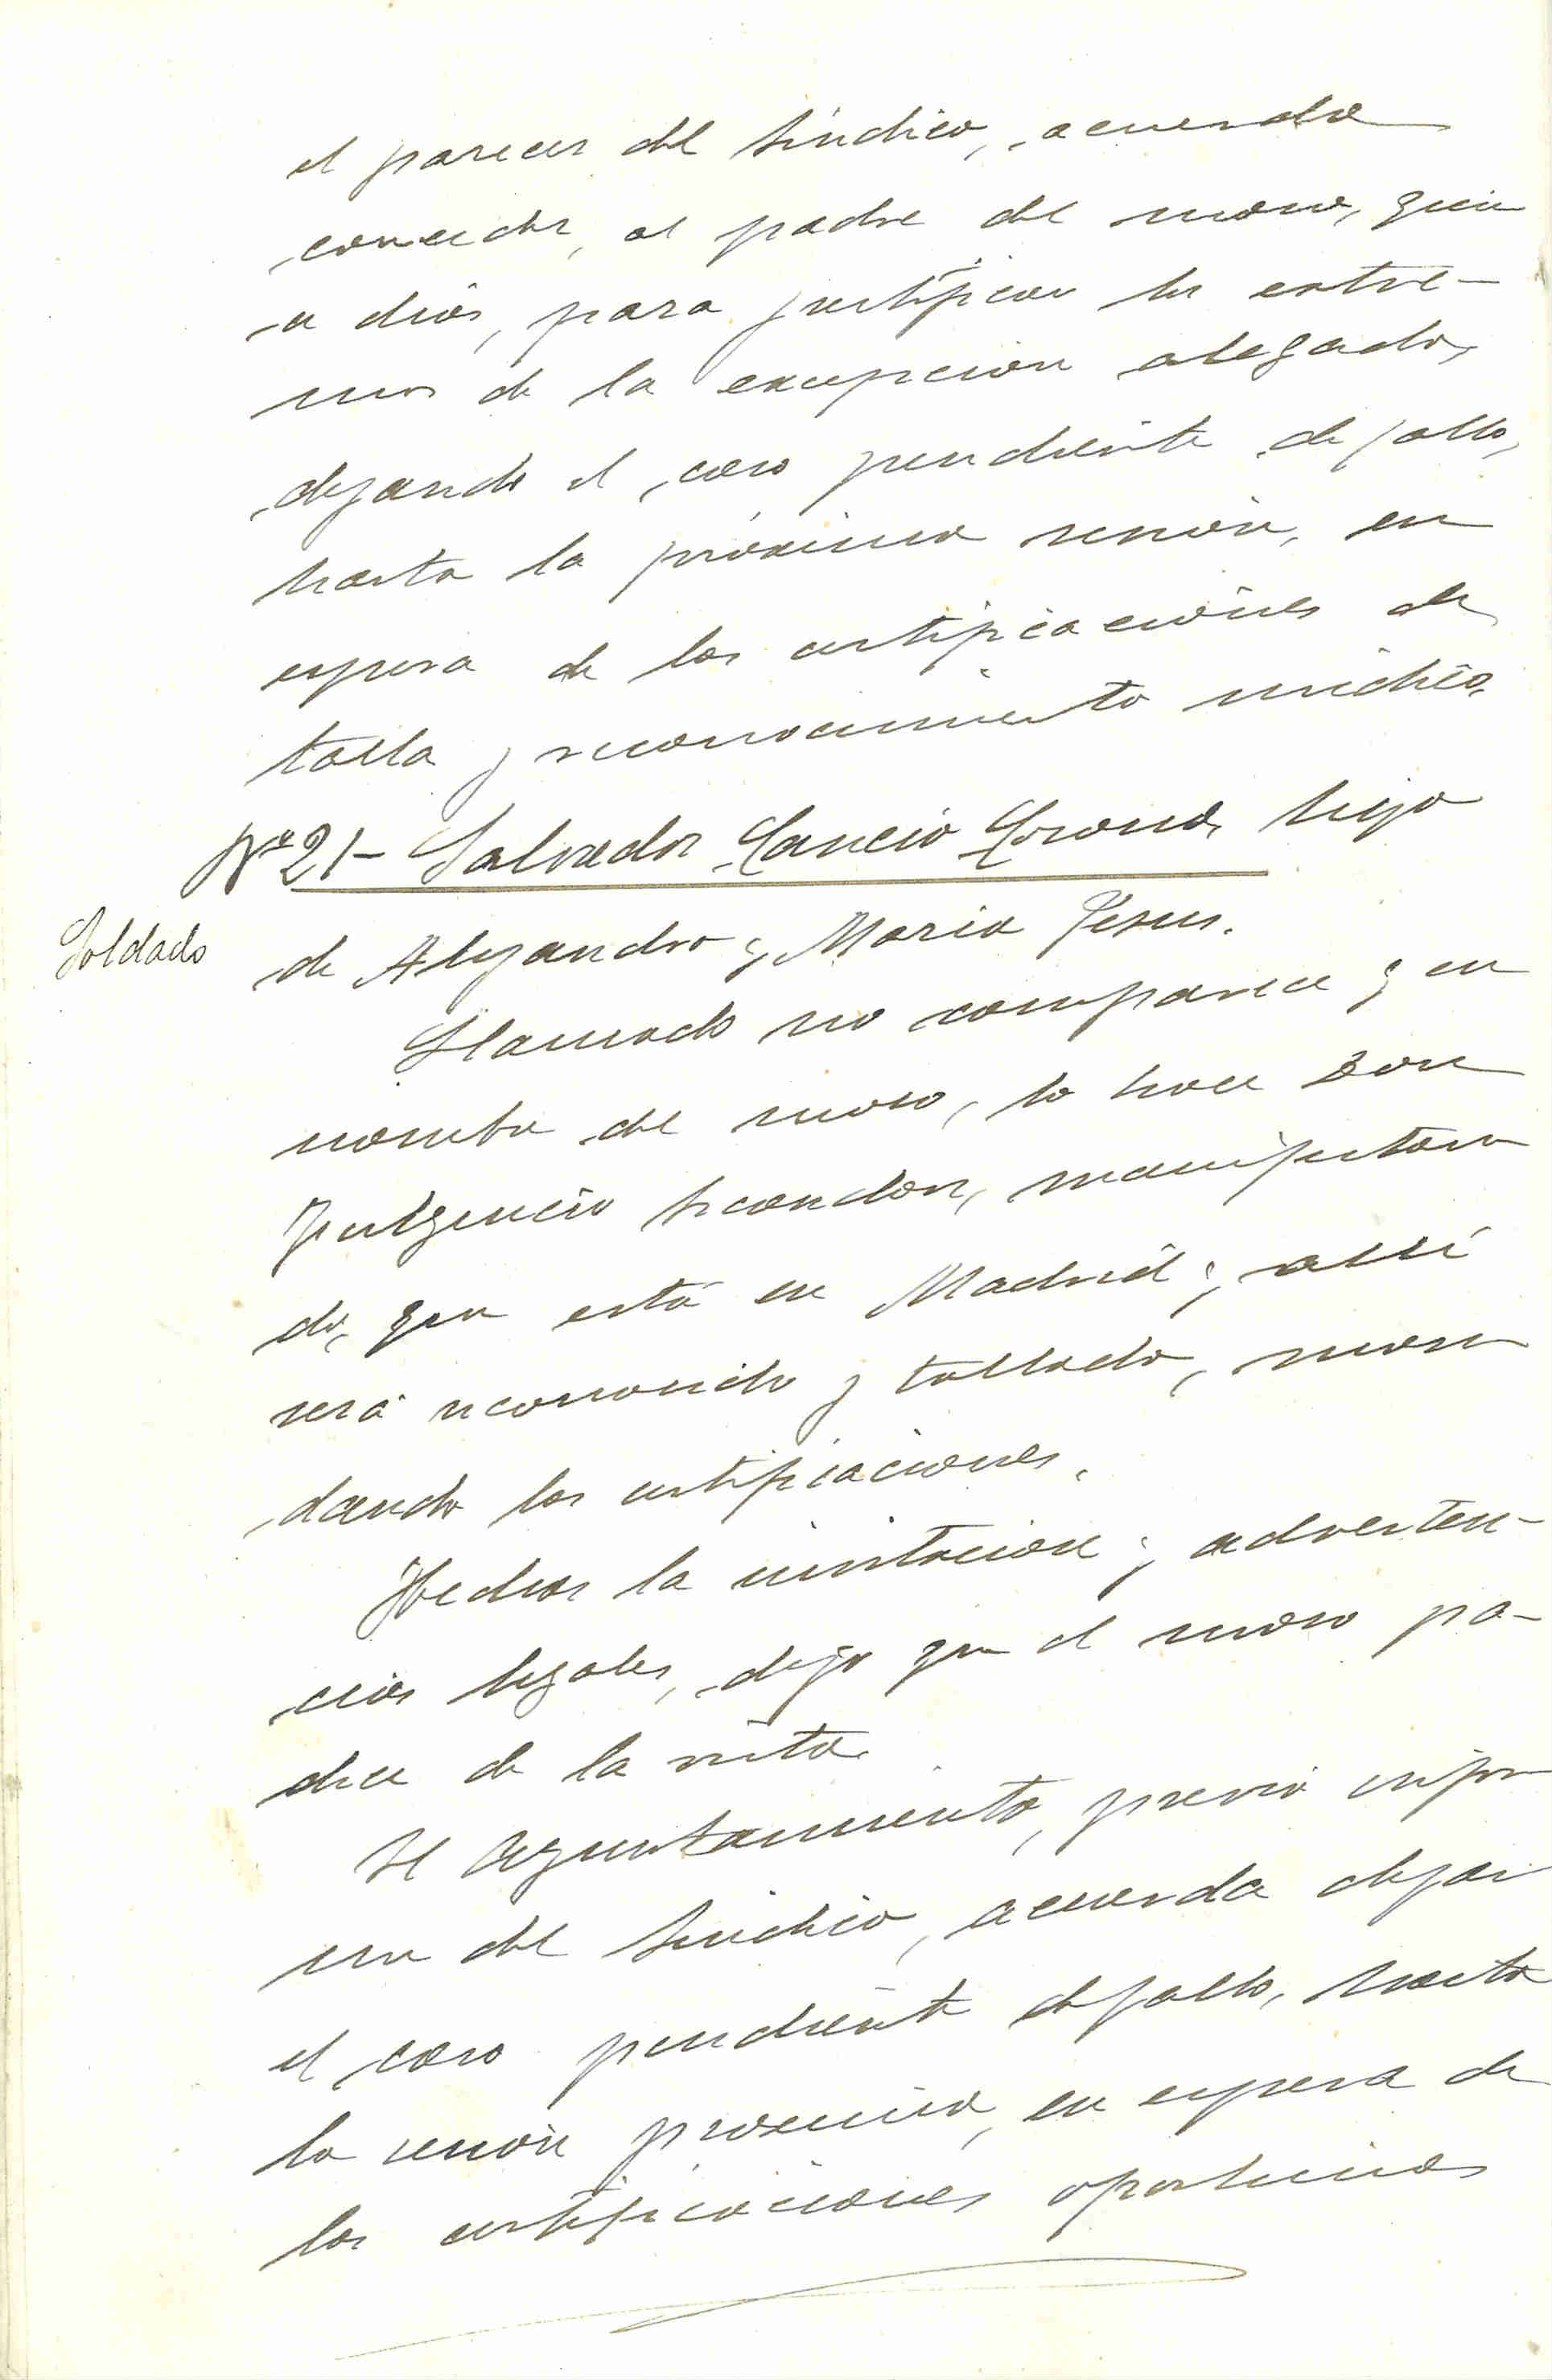 el parecer del Síndico, acuerda
conceder, al padre del mozo, quin
ce dias, para justificar los extre-
mos de la excepcion alegada,
dejando el caso pendiente de fallo,
hasta la próxima sesión, en
espera de las certificaciones de
talla y reconocimiento médico.
Nº 21- Salvador Cancio Corona, hijo
Soldado
de Alejandro y Maria Jesus.
Llamado no comparece y en
nombre del mozo, lo hace Don
Fulgencio, manifestan
do, que está en Madrid y allí
será reconocido y tallado, man
dando las certificaciones.
Hechas la invitacion y adverten-
cias legales, dijo que el mozo pa-
dece de la vista.
El Ayuntamiento, previo infor
me del Síndico, acuerda dejar
el caso pendiente de fallo, hasta
la sesión proxima, en espera de
las certificaciones oportunas